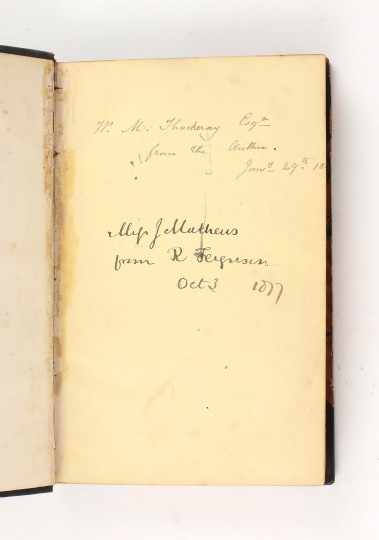 W. M. Thackeray Esqre
from the Author.
Jany. 29th 18
Miss J Matheus
from R Ferguson
Oct 3 1877